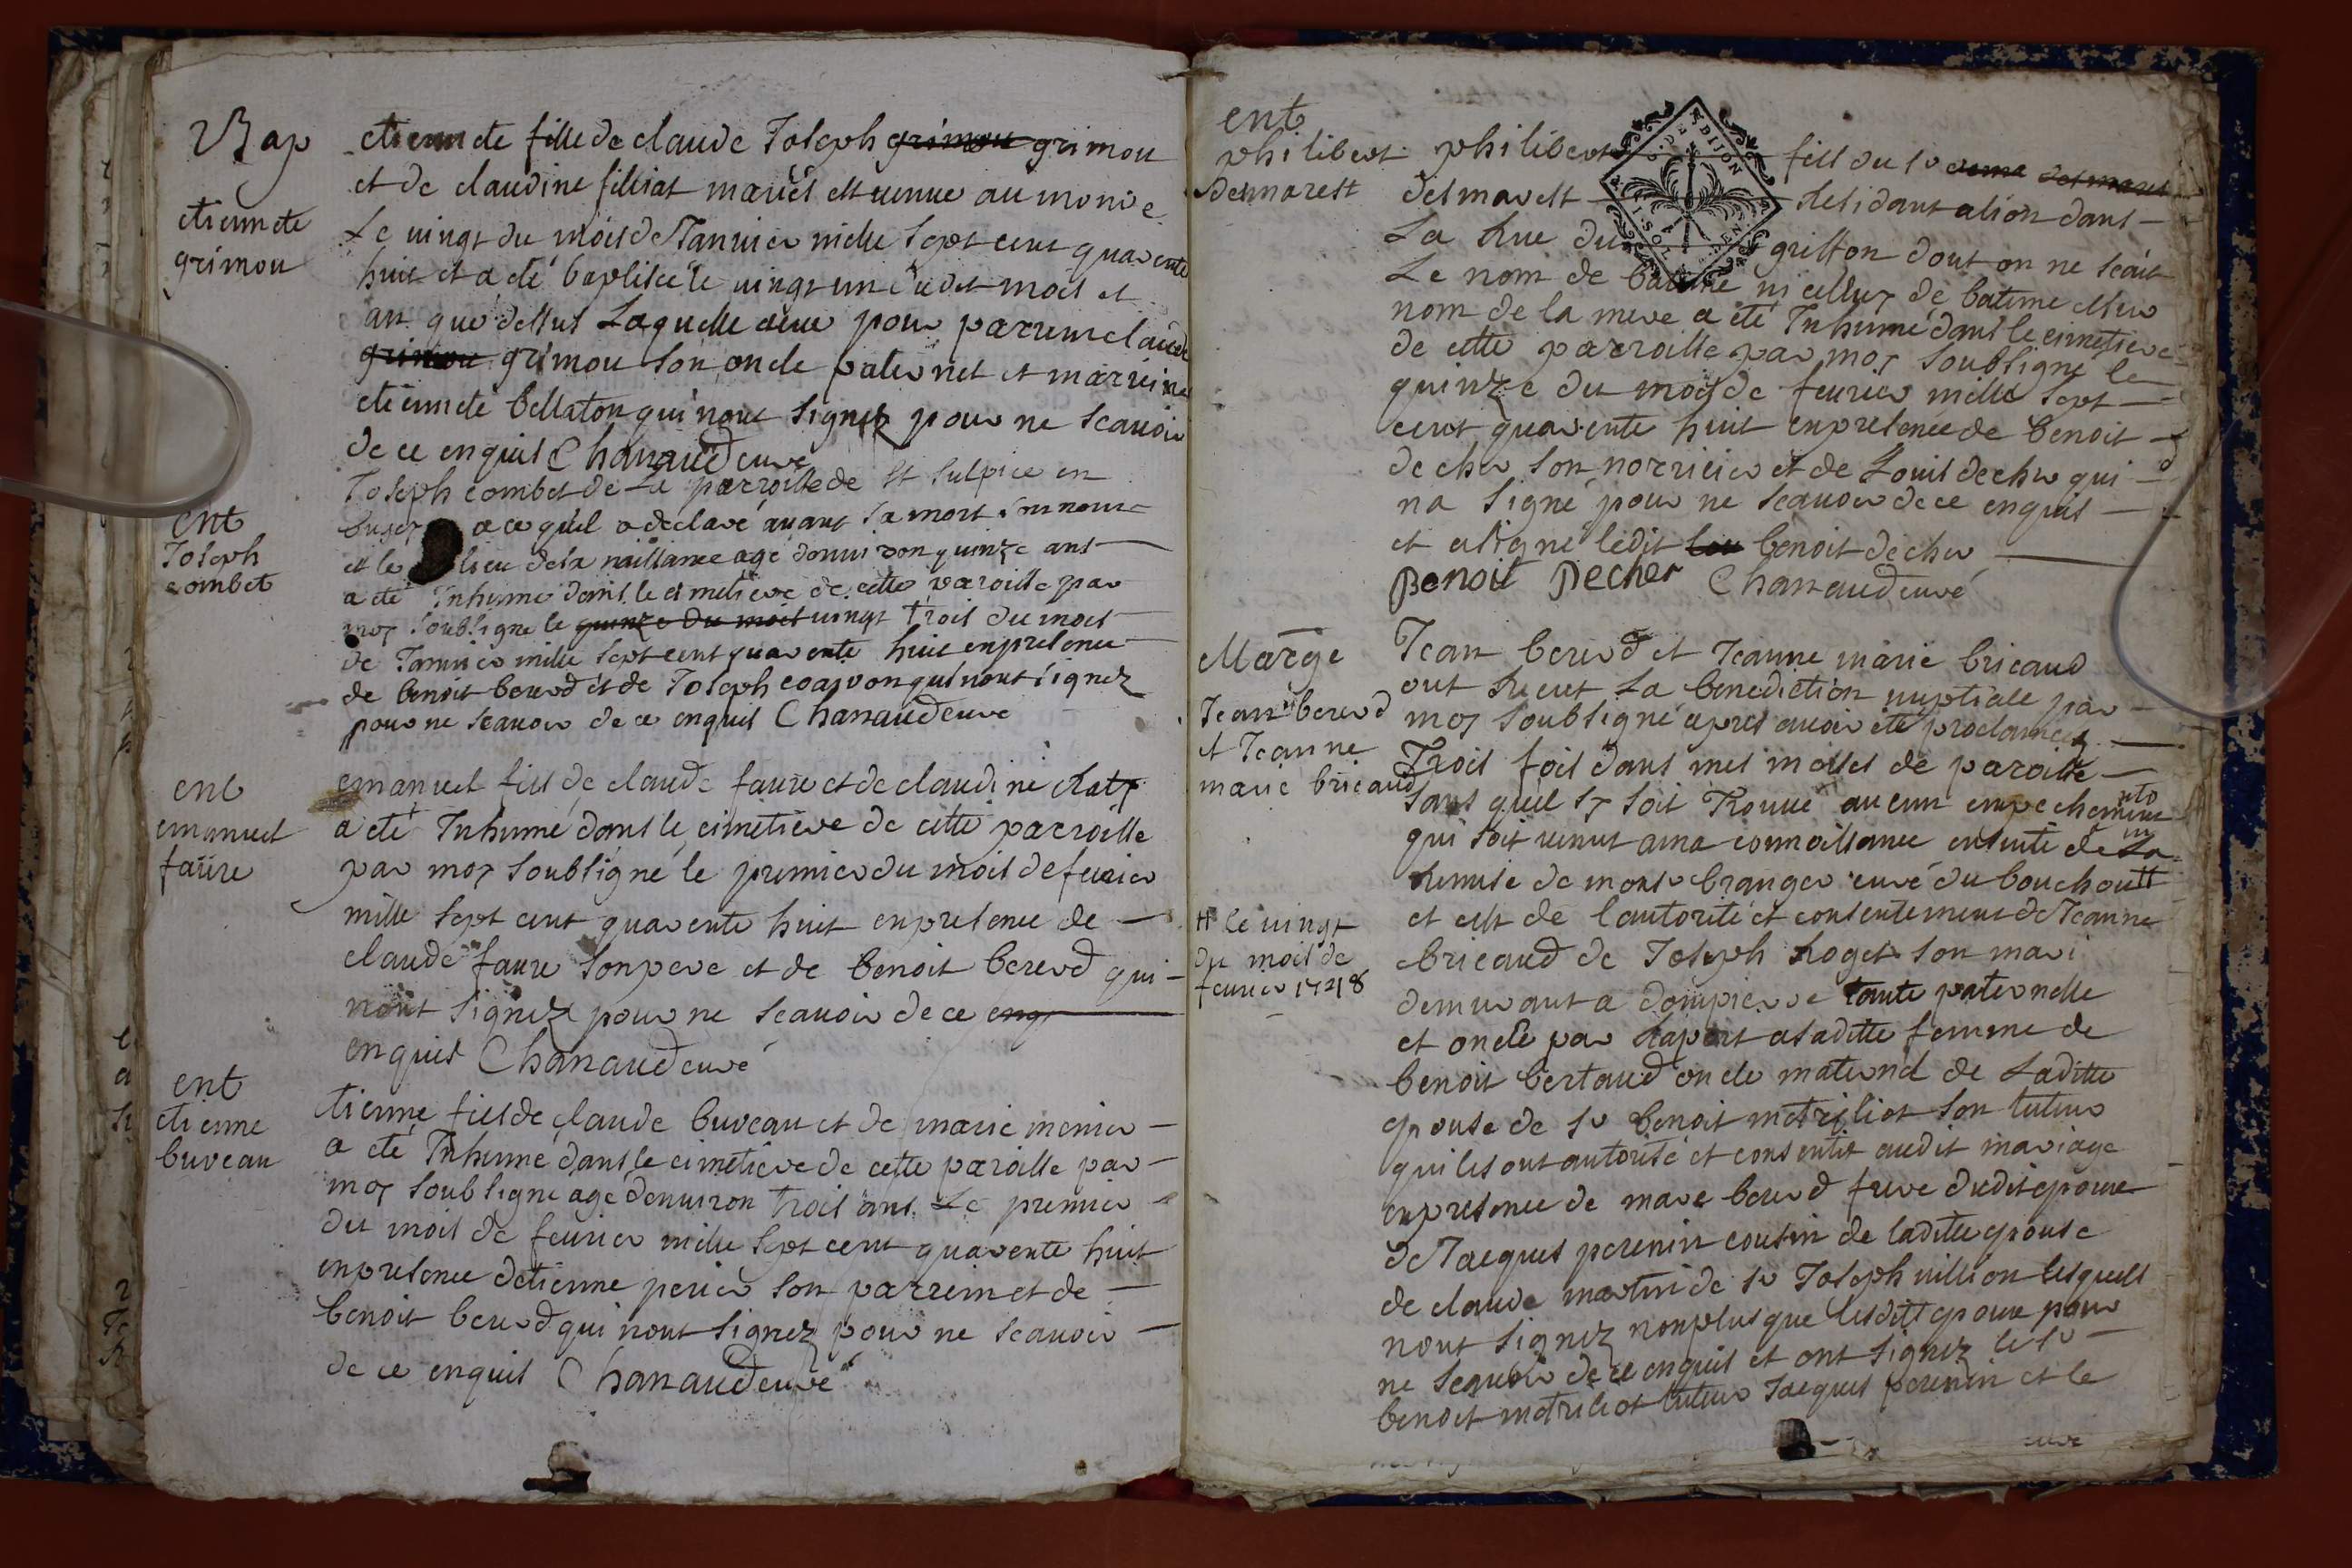 Bap
etiennete
grimon
etiennete fille de claude Joseph grimon grimon
et de claudine filliat mariés est venue au monde
Le vingt du mois de Janvier mille sept cent quarente
huit et a eté baptisée le vingt un dudit mois et
an que dessus Laquelle a eue pour parrein claude
grimon grimon son oncle paternel et marrine
etiennete bellaton qui nont signez pour ne scavoir
de ce enquis Chanaud curé
ent
Joseph
combet
Joseph combet de La parroisse de st sulpice en
bugey a ce qu'il a declaré avant sa mort son nom
et le lieu de sa naissance agé denviron quinze ans
a eté Inhumé dans le cimetiere de cette paroisse par
moy soubsigné le quinze du mois vingt trois du mois
de Janvier mille sept cent quarente huit en presence
de benoit bererd et de Joseph coajvon qui nont signez
pour ne scavoir de ce enquis Chanaud curé
ent
emanuel
faure
emanuel fils de claude faure et de claudine chaty
a eté Inhumé dans le cimetiere de cette parroisse
par moy soubsigné le premier du mois de fevrier
mille sept cent quarente huit en presence de
claude faure son pere et de benoit bererd qui
nont signez pour ne scavoir de ce enq
enquis Chanaud curé
ent
etienne
buveau
etienne fils de claude buveau et de marie menier
a eté Inhumé dans le cimetiere de cette paroisse par
moy soubsigné agé denviron trois ans Le premier
du mois de fevrier mille sept cent quarente huit
en presence detienne perier son parrein et de
benoit bererd qui nont signez pour ne scavoir
de ce enquis Chanaud curé
ent
philibert
desmarest
philibert fils du sr desmarest
desmarest Residant a lion dans
La Rue du griffon dont on ne scait
Le nom de batême ni celluy de batême et sur
nom de la mere a eté Inhumé dans le cimetiere
de cette parroisse par moy soubsigné le
quinze du mois de fevrier mille sept
cent quarente huit en presence de benoit
decher son norricier et de Louis decher qui
na signé pour ne scavoir de ce enquis
et a signé ledit benoit decher
Benoit Decher Chanaud curé
Marge
Jean bererd
et Jeanne
marie bricaud
Jean bererd et Jeanne marie bricaud
ont Receut La benediction nuptiale par
moy soubsigné apres avoir été proclamez
Trois fois dans mes messes de paroisse
sans qu'il sy soit Trouvé aucun empechement
qui soit venut a ma connoissance ensuite de La
Remise de monsr branger curé du bouchoutt
et est de lautorité et consentement de Jeanne
bricaud de Joseph Roget son mari
demeurant a dompierre tante paternelle
et oncle par Raport a saditte femme de
benoit bertaud oncle maternel de Laditte
epouse de sr benoit metriliot son tuteur
qui les ont autorisé et consentit audit mariage
en presence de marc bererd frere dudit epoux
de Jacques perenin cousin de laditte epouse
de claude martin de sr Joseph million lesquels
nont signez nonplus que lesditts epoux pour
ne scavoir de ce enquis et ont signez le sr
benoit metriliot tuteur Jacques perenin et le
# le vingt
du mois de
fevrier 1748
curé